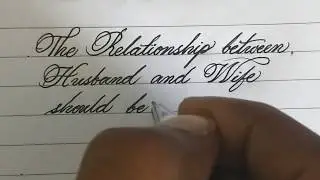 The Relationship between,
Husband and Wife
should be